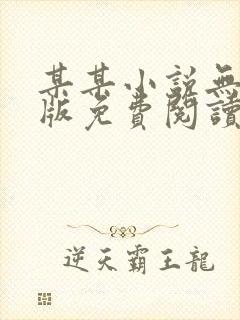 某某小說無
版免費閱讀
逆天霸王龍